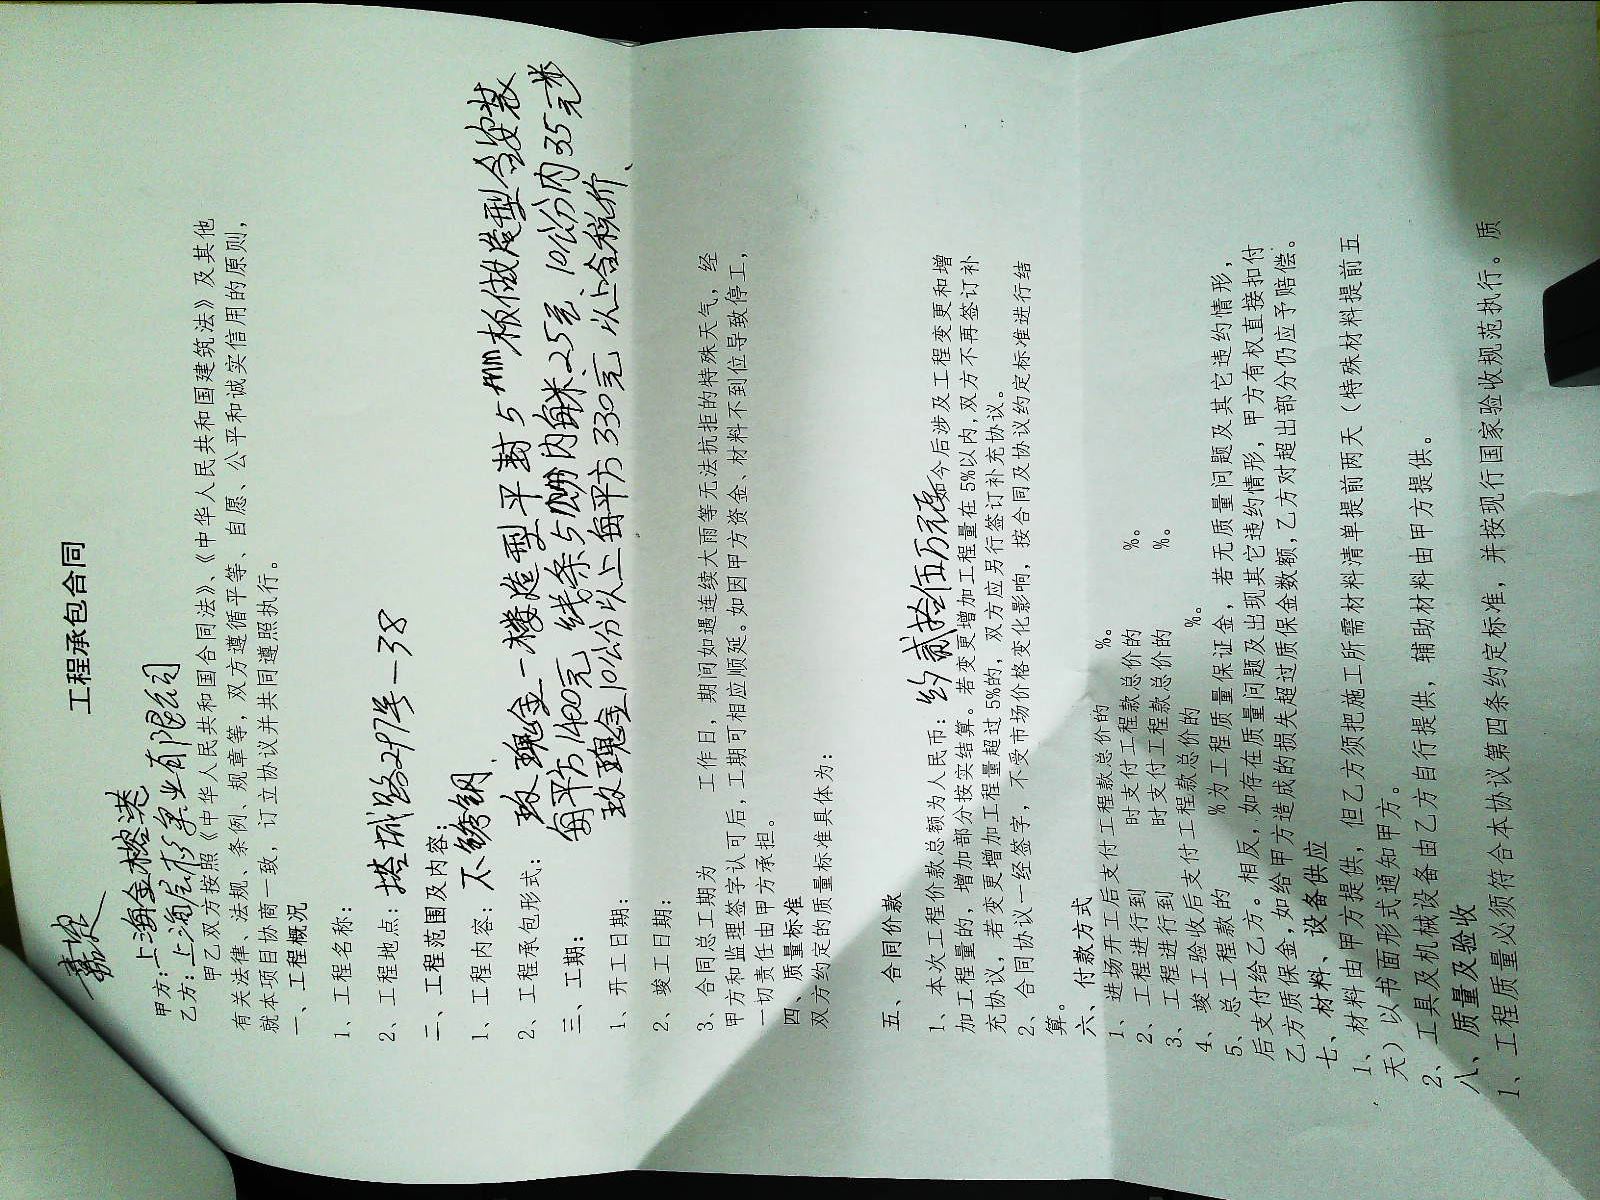 工程承包合同
嘉定
甲方:上海金榕港
乙方:上海层杉実业有限公司
甲乙双方按照《中华人民共和国合同法》、《中华人民共和国建筑法》及其他
有关法律、法规、条例、规章等，双方遵循平等、自愿、公平和诚实信用的原则，
就本项目协商一致，订立协议并共同遵照执行。
一、工程概况
1、工程名称：
2、工程地点：塔城路297号—38
二、工程范围及内容：
1、工程内容：不锈钢
2、工程承包形式：
玫瑰金一楼造型平封5mm板做造型含安装
每平方1400元 线条5公分内每米25元 10公分内35元米
玫瑰金10公分以上每平方330元 以上含税价
三、工期：
1、开工日期：
2、竣工日期：
3、合同总工期为 工作日，期间如遇连续大雨等无法抗拒的特殊天气，经
甲方和监理签字认可后，工期可相应顺延。如因甲方资金、材料不到位导致停工，
一切责任由甲方承担。
四、质量标准
双方约定的质量标准具体为：
五、合同价款
1、本次工程价款总额为人民币：约贰拾伍万元 如今后涉及工程变更和增
加工程量的，增加部分按实结算。若变更增加工程量在5%以内，双方不再签订补
充协议，若变更增加工程量超过5%的，双方应另行签订补充协议。
2、合同协议一经签字，不受市场价格变化影响，按合同及协议约定标准进行结
算。
六、付款方式
1、进场开工后支付工程款总价的 %。
2、工程进行到 时支付工程款总价的 %。
3、工程进行到 时支付工程款总价的 %。
4、竣工验收后支付工程款总价的 %。
5、总工程款的 %为工程质量保证金，若无质量问题及其它违约情形，
后支付给乙方。相反，如存在质量问题及出现其它违约情形，甲方有权直接扣付
乙方质保金，如给甲方造成的损失超过质保金数额，乙方对超出部分仍应予赔偿。
七、材料、设备供应
1、材料由甲方提供，但乙方须把施工所需材料清单提前两天（特殊材料提前五
天）以书面形式通知甲方。
2、工具及机械设备由乙方自行提供，辅助材料由甲方提供。
八、质量及验收
1、工程质量必须符合本协议第四条约定标准，并按现行国家验收规范执行。质